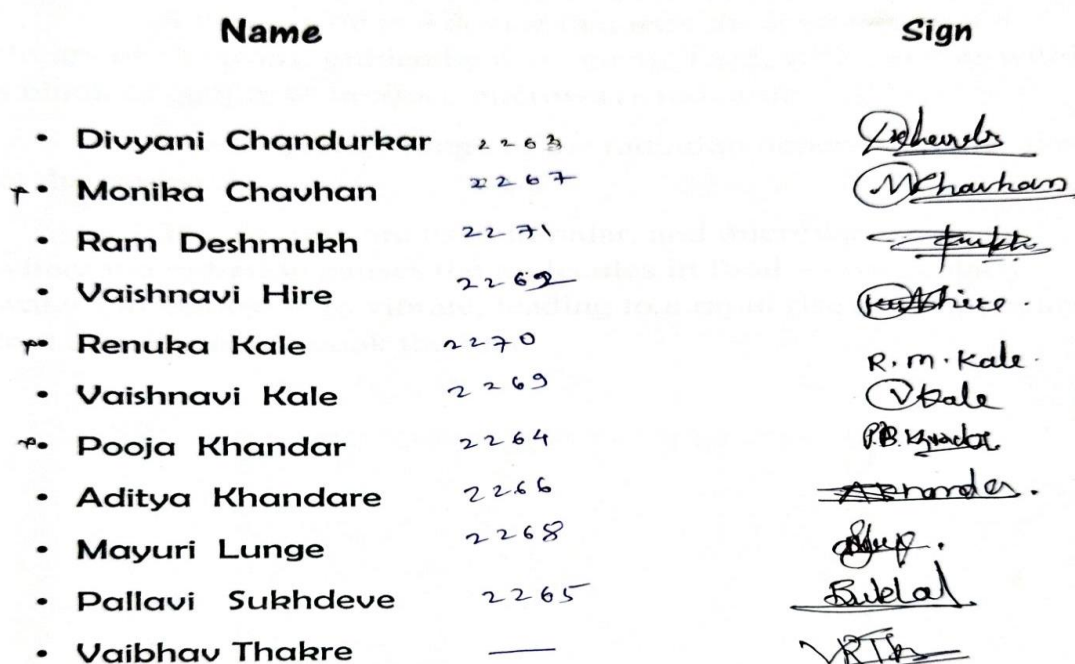 Name Sign
• Divyani Chandurkar 2263
Monika Chavhan 2267 MChavhan
• Ram Deshmukh 2271
• Vaishnavi Hire 2262
Renuka Kale 2270 R.m.Kale.
• Vaishnavi Kale 2269 VKale
Pooja Khandar 2264
• Aditya Khandare 2266
• Mayuri Lunge 2268
• Pallavi Sukhdeve 2265
• Vaibhav Thakre —